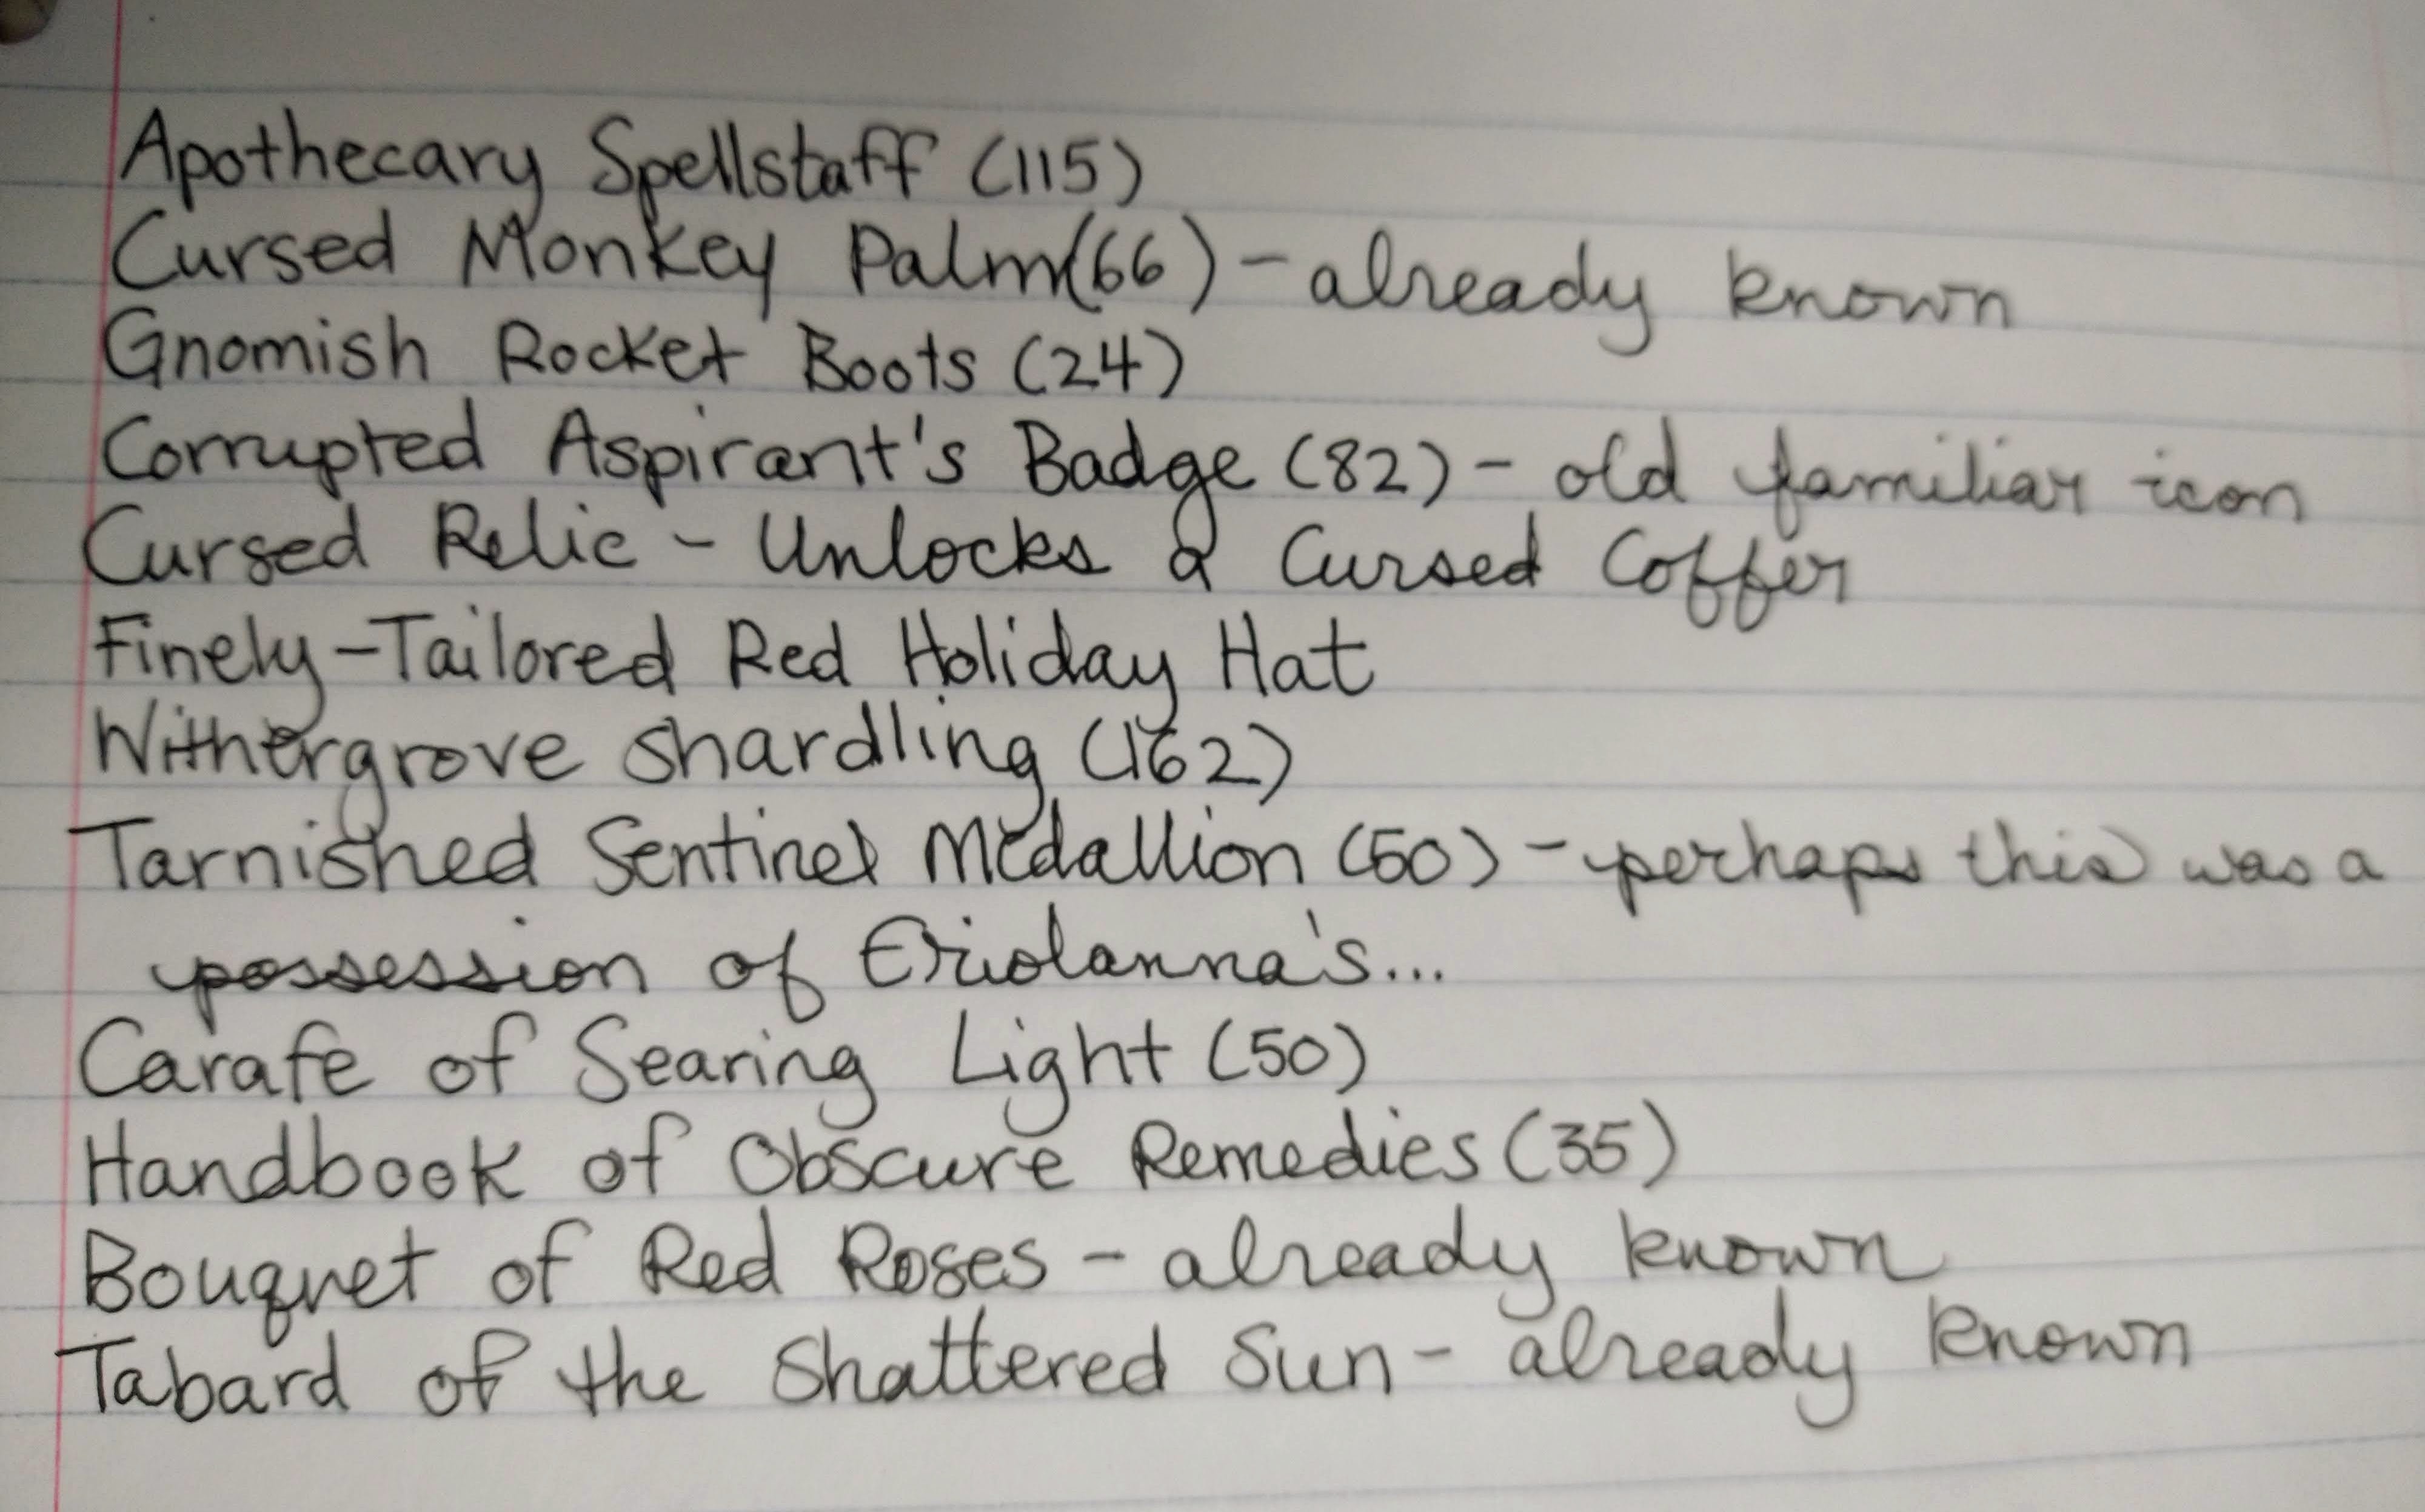 Apothecary Spellstaff (115)
Cursed Monkey Palm (66) - already known
Gnomish Rocket Boots (24)
Corrupted Aspirant's Badge (82) - old familiar icon
Cursed Relic - Unlocks a Cursed Coffer
Finely-Tailored Red Holiday Hat
Withergrove Shardling (162)
Tarnished Sentinel Medallion (50) - perhaps this was a
possession of Eriolanna's...
Carafe of Searing Light (50)
Handbook of Obscure Remedies (35)
Bouquet of Red Roses - already known
Tabard of the Shattered Sun - already known